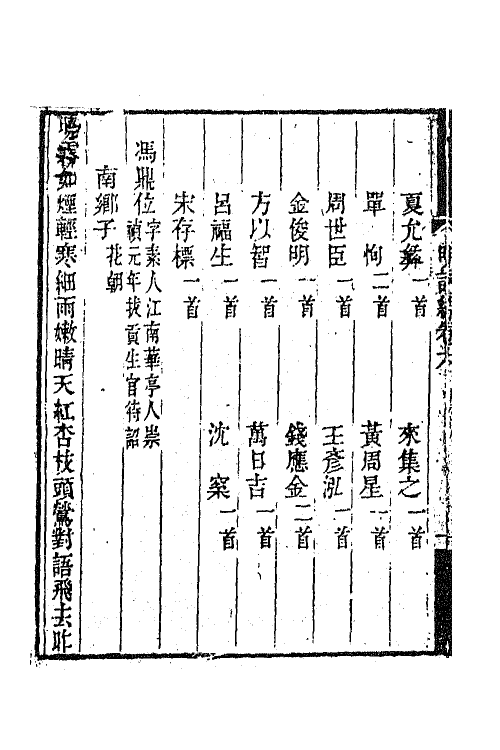 夏允彝一首　來集之一首
單恂二首　黃周星一首
周世臣一首　王彥泓一首
金俊明一首　錢應金二首
方以智一首　萬日吉一首
呂福生一首　沈窠一首
宋存標一首
馮鼎位字素人江南華亭人崇禎元年拔貢生官待詔
南鄉子花朝
曉霧如煙輕寒細雨嫩晴天紅杏枝頭鶯對語飛去昨
明詞綜卷六